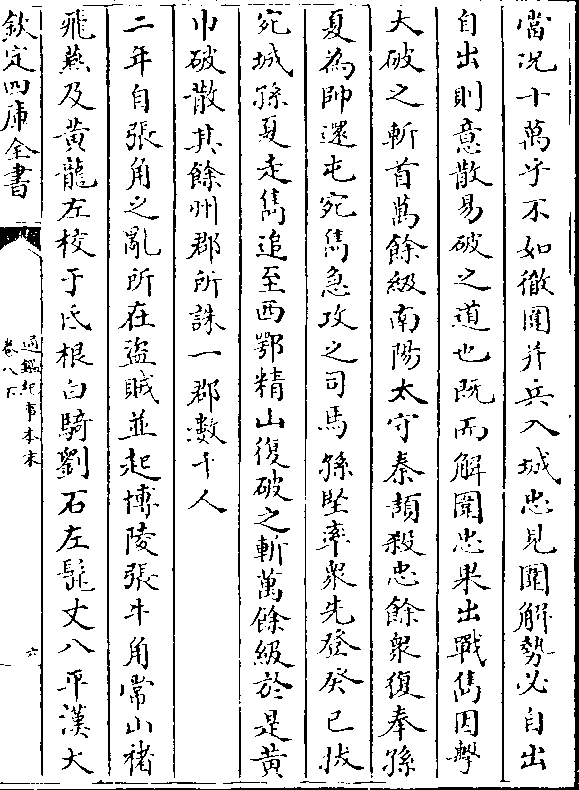 當況十萬乎不如徹圍并兵入城忠見圍解勢必自出
自出則意散易破之道也既而解圍忠果出戰儁因擊
大破之斬首萬餘級南陽太守秦頡殺忠餘衆復奉孫
夏為帥還屯宛儁急攻之司馬孫堅率衆先登癸巳拔
宛城孫夏走儁追至西鄂精山復破之斬萬餘級於是黄
巾破散其餘州郡所誅一郡數千人
二年自張角之亂所在盜賊並起博陵張牛角常山褚
飛燕及黄龍左校于氐根白騎劉石左髭丈八平漢大
欽定四庫全書
通鑑紀事本末
卷八下
六